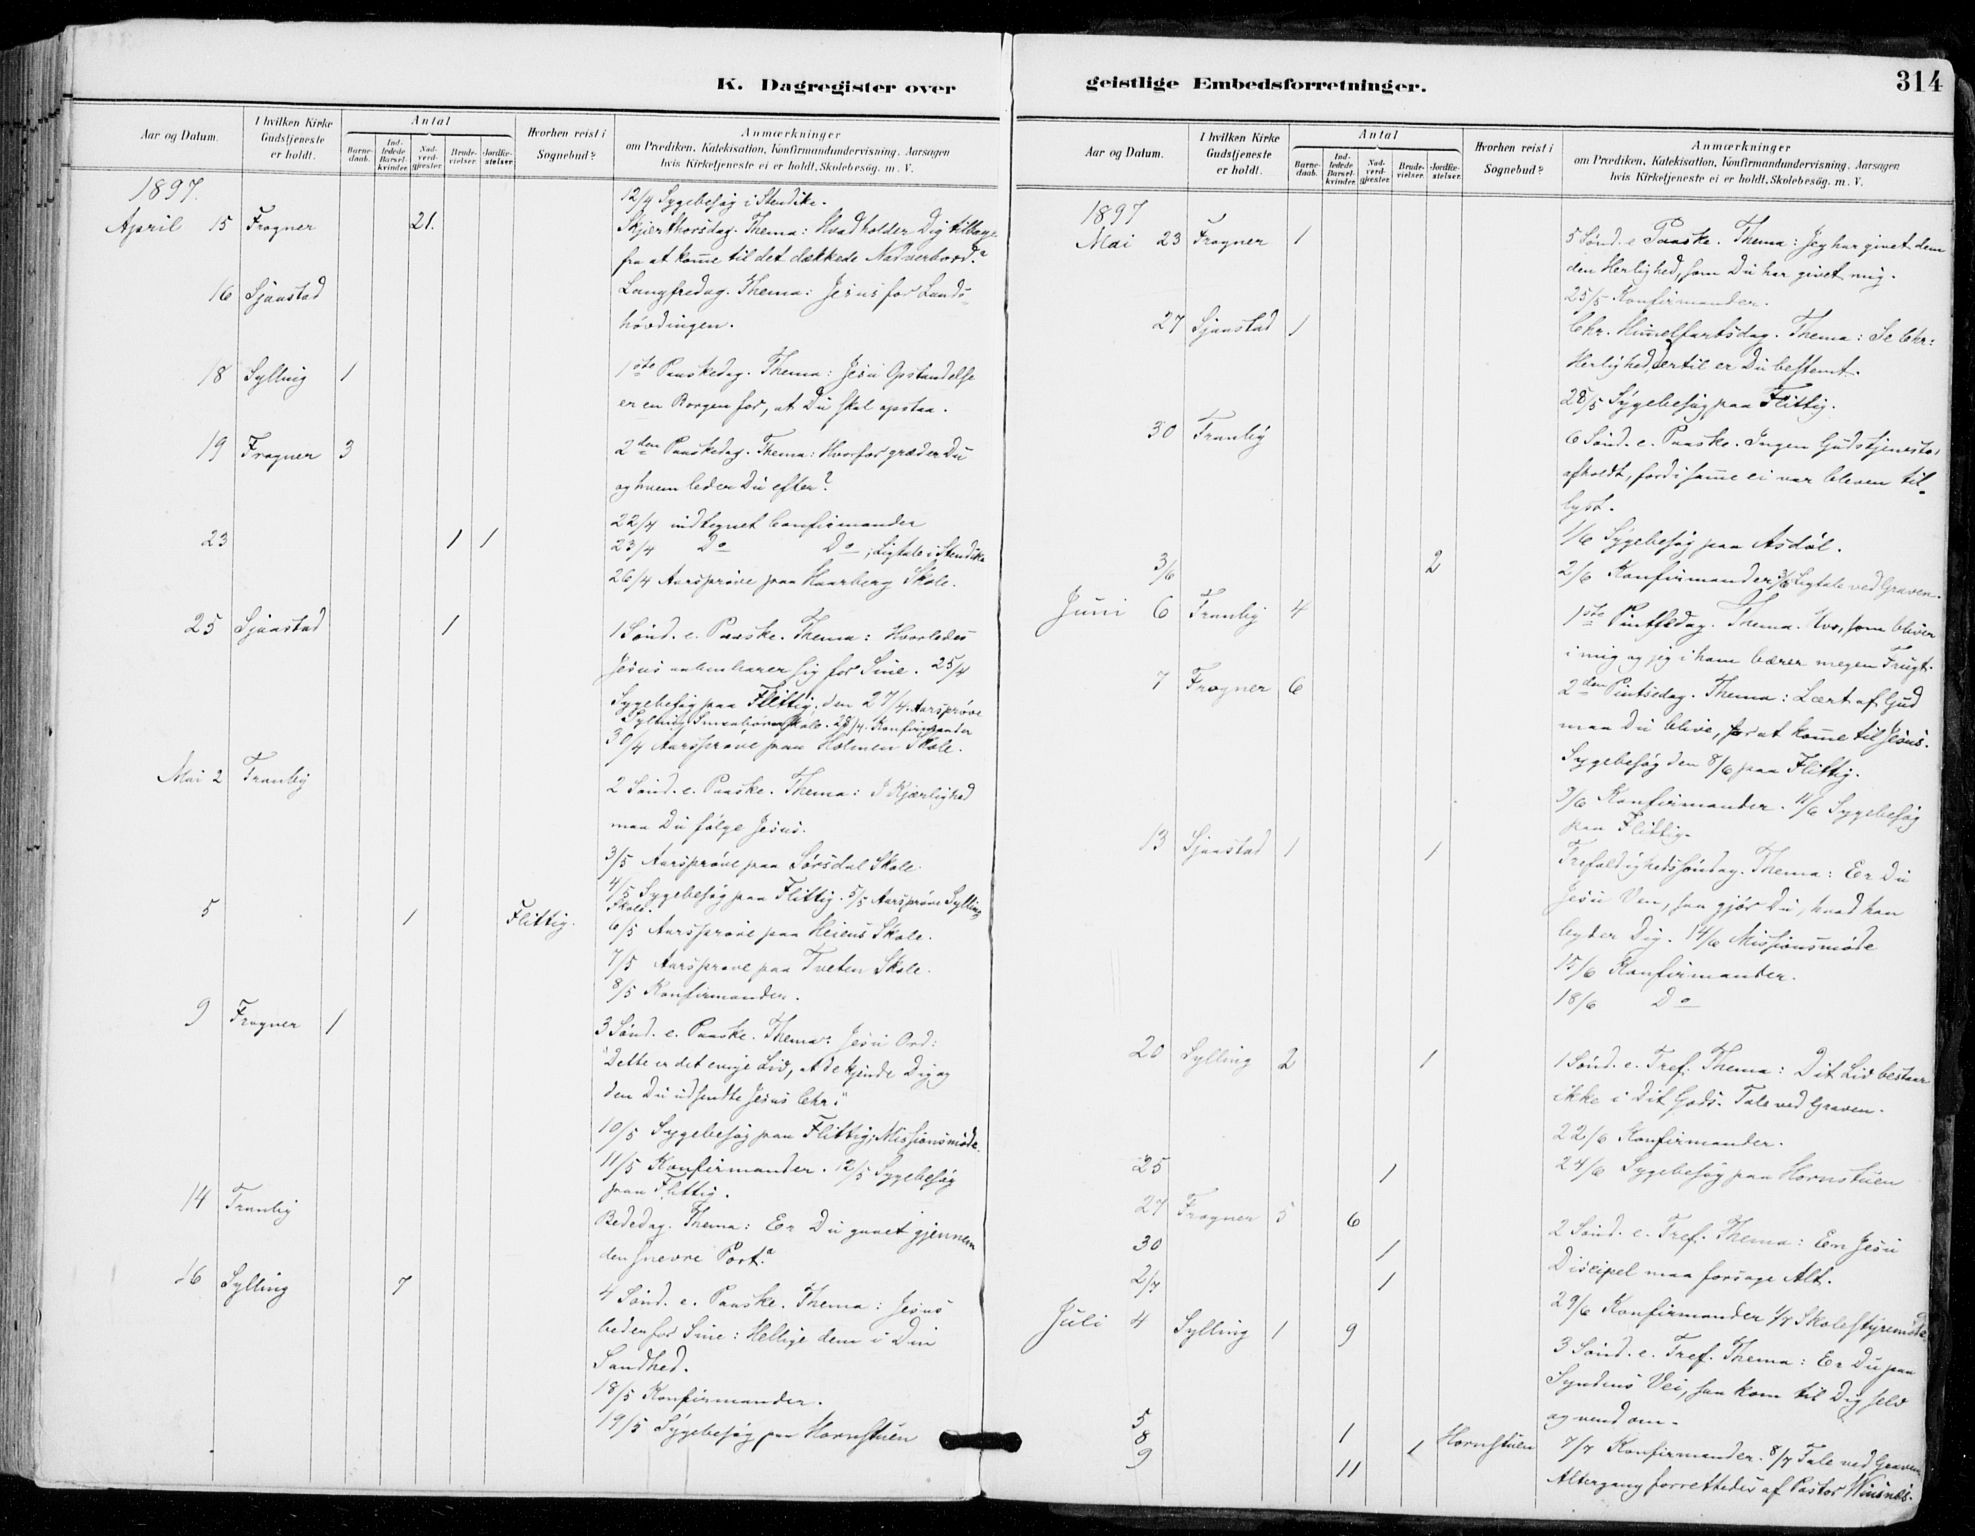 K. Dagregister over
Aar og Datum.
I hvilken Kirke Gudstjeneste er holdt.
Antal
Barnedaab.
Indledede Barselkvinder.
Nadverdgjester.
Brudevielser.
Jordfæstelser.
Hvorhen reist i Sognebud?
Anmærkninger
om Prædiken, Katekisation, Konfirmandundervisning, Aarsagen
hvis Kirketjeneste ei er holdt, Skolebesøg. m. V.
1897.
12/4 Sygebesøg i Stendike.
April 15 Frogner 21. Skjærthorsdag. Thema: Hvad holder Dig tilbage
fra at kome til det dækkede Nadverbord?
16 Sjaastad Langfredag. Thema: Jesus for Lands-
hövdingen.
18 Sylling 1 1ste Paaskedag. Thema: Jesu Opstandelse
er en Borgen for, at Du skal opstaa.
19 Frogner 3 2den Paaskedag. Thema: Hvorfor græder Du
og hvem leder Du efter?
22/4 indtegnet Confirmander
23 1 1 23/4 Do Do; Ligtale i Stendike
26/4 Aarsprøve paa Haarberg Skole.
25 Sjaastad 1 1 Sönd. e. Paaske. Thema: Hvorledes
Jesus aabenbarer sig for Sine. 25/4
Sygebesøg paa Flittig; den 27/4 Aarsprøve
Sylling Skole. 28/4 Konfirmander
30/4 Aarsprøve paa Holmen Skole.
Mai 2 Tranby 2 Sönd. e. Paaske. Thema: I Kjærlighed
maa Du følge Jesus.
3/5 Aarsprøve paa Sørsdal Skole.
4/5 Sygebesøg paa Flittig. 5/5 Aarsprøve Sylling
Skole.
5 1 Flittig. 6/5 Aarsprøve paa Heiens Skole.
7/5 Aarsprøve paa Tveten Skole.
8/5 Konfirmander.
9 Frogner 1 3 Sönd. e. Paaske. Thema: Jesu Ord:
"Dette er det evige Liv, at de kjende Dig og
den Du udsendte Jesus Chr."
10/5 Sygebesøg paa Flittig; Missionsmøde.
11/5 Konfirmander. 12/5 Sygebesøg
paa Flittig.
14 Tranby Bededag. Thema: Er Du gaaet gjennem
den snevre Port?
16 Sylling 7 4 Sönd. e. Paaske. Thema: Jesus
beder for Sine: Hellige dem i Din
Sandhed.
18/5 Konfirmander.
19/5 Sygebesøg paa Hornstuen
geistlige Embedsforretninger.
314
Aar og Datum.
I hvilken Kirke Gudstjeneste er holdt.
Antal
Barnedaab.
Indledede Barselkvinder.
Nadverdgjester.
Brudevielser.
Jordfæstelser.
Hvorhen reist i Sognebud?
Anmærkninger
om Prædiken, Katekisation, Konfirmandundervisning, Aarsagen
hvis Kirketjeneste ei er holdt, Skolebesøg. m. V.
1897
Mai 23 Frogner 1 5 Sönd. e. Paaske. Thema: Jeg har givet dem
den Herlighed, som Du har givet mig.
25/5 Konfirmander.
27 Sjaastad 1 Chr. Himelfartsdag. Thema: Se Chr:
Herlighed, dertil er Du bestemt.
28/5 Sygebesøg paa Flittig.
30 Tranby 6 Sönd. e. Paaske. Ingen Gudstjeneste,
afholdt, fordi same ei var bleven til-
lyst.
1/6 Sygebesøg paa Asdöl.
3/6 2 2/6 Konfirmander 3/6 Ligtale ved Graven.
Juni 6 Tranby 4 1ste Pintsedag. Thema. Hvo, som bliver
i mig og jeg i ham bærer megen Frugt.
7 Frogner 6 2den Pintsedag. Thema: Lært af Gud
maa Du blive, for at kome til Jesus.
Sygebesøg den 8/6 paa Flittig.
9/6 Konfirmander. 11/6 Sygebesøg
paa Flittig.
13 Sjaastad 1 1 Trefoldighedssöndag. Thema: Er Du
Jesu Ven, saa gjør Du, hvad han
byder Dig. 14/6 Missionsmøde
15/6 Konfirmander.
18/6 Do
20 Sylling 2 1 1 Sönd. e. Tref. Thema: Dit Liv bestaar
ikke i Dit Gods. Tale ved Graven.
22/6 Konfirmander.
25 1 24/6 Sygebesøg paa Hornstuen
27 Frogner 5 6 2 Sönd. e. Tref. Thema: En Jesu
30 1 Discipel maa forsage Alt.
2/7 1
29/6 Konfirmander 1/7 Skolestyremøde
Juli 4 Sylling 1 9 3 Sönd. e. Tref. Thema: Er Du paa
Syndens Vei, saa kom til Dig selv
og vend om.
5 1 Hornstuen 7/7 Konfirmander. 8/7 Tale ved Graven
8 1
9 11 Altergang forrettedes af Pastor